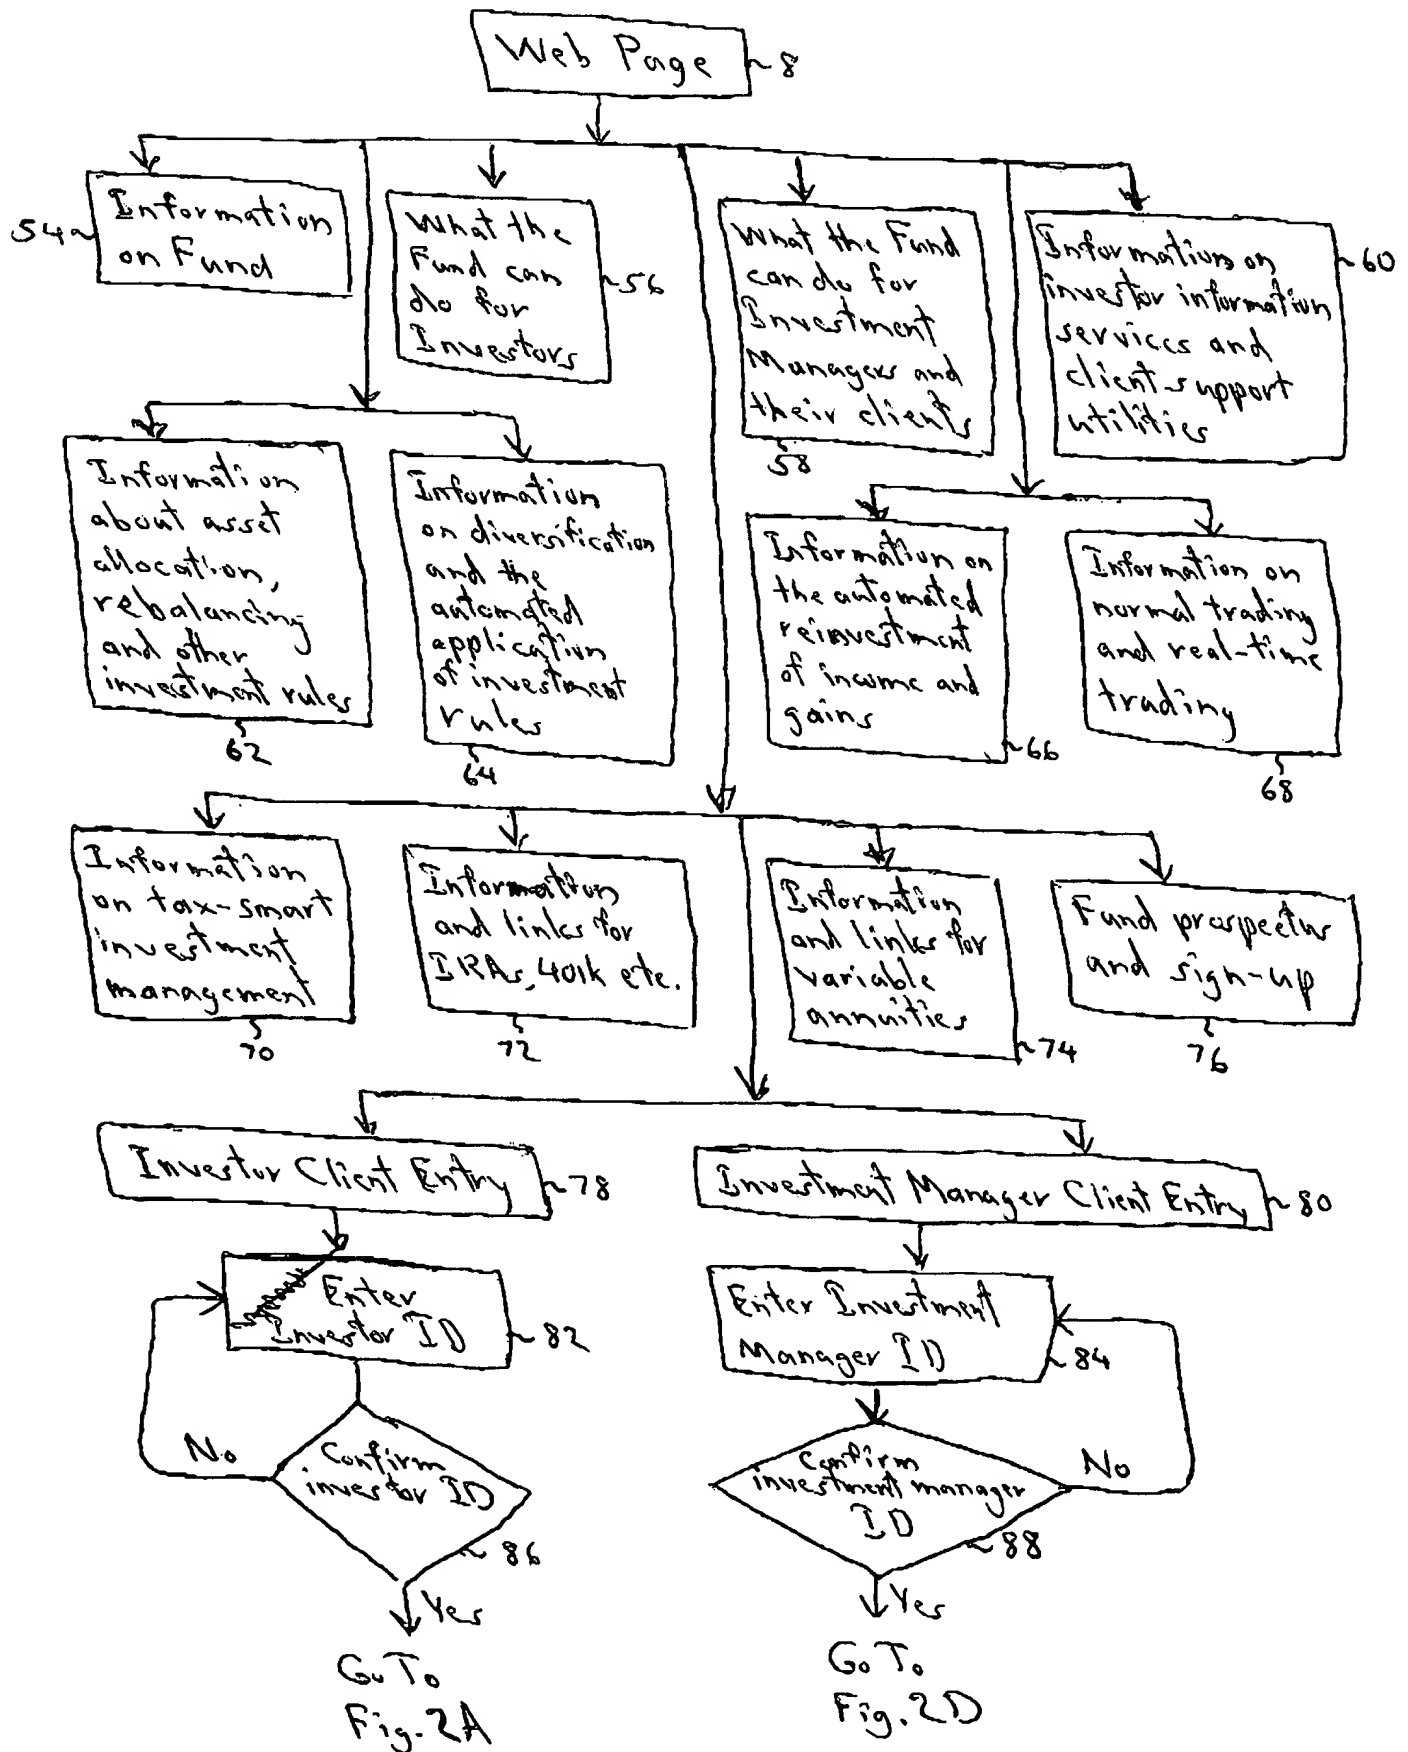 Web Page
8
Information
on Fund
54
What the
Fund can
do for
Investors
56
What the Fund
can do for
Investment
Managers and
their clients
58
Information on
investor information
services and
client-support
utilities
60
Information
about asset
allocation,
rebalancing
and other
investment rules
62
Information
on diversification
and the
automated
application
of investment
rules
64
Information on
the automated
reinvestment
of income and
gains
66
Information on
normal trading
and real-time
trading
68
Information
on tax-smart
investment
management
70
Information
and links for
IRAs, 401k etc.
72
Information
and links for
variable
annuities
74
Fund prospectus
and sign-up
76
Investor Client Entry
78
Investment Manager Client Entry
80
Enter
Investor ID
82
Enter Investment
Manager ID
84
Confirm
investor ID
86
No
Confirm
investment manager
ID
88
No
Yes
Yes
Go To
Fig. 2A
Go To
Fig. 2D